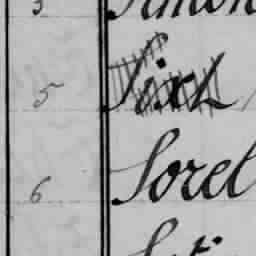 3 Simon
5 Sixl
6 Sorel